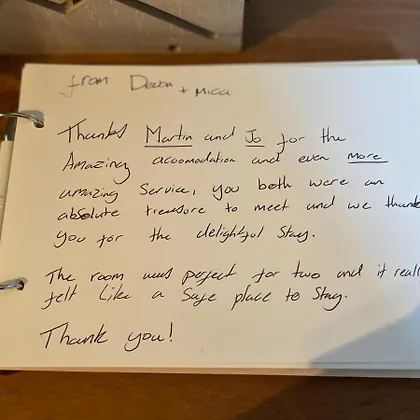 from Devon + Mica
Thanks Martin and Jo for the
Amazing accomodation and even more
amazing Service, you both were an
absolute treasure to meet and we thank
you for the delightful Stay.
The room was perfect for two and it reall
felt Like a Safe place to Stay.
Thank you!